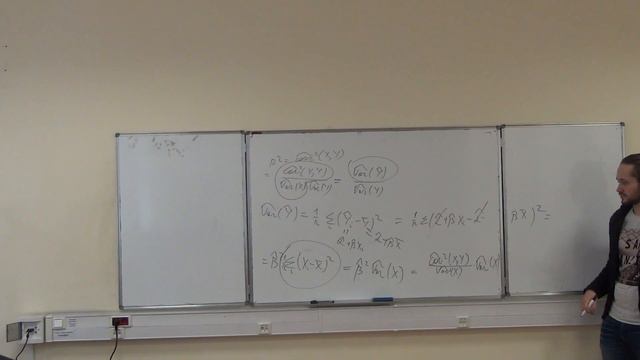 ρ² = Corr²(X,Y)
= Cov²(X,Y) / Var(X)Var(Y) = Var(Ŷ) / Var(Y)
Var(Ŷ) = 1/n Σ(Ŷᵢ - Ȳ)² = 1/n Σ(α̂ + βXᵢ - α̂ - βX̄)² =
α̂ + βXᵢ α̂ + βX̄
= β̂² 1/n Σ(Xᵢ - X̄)² = β̂² Var(X) = Cov²(X,Y) / Var²(X) · Var(X)